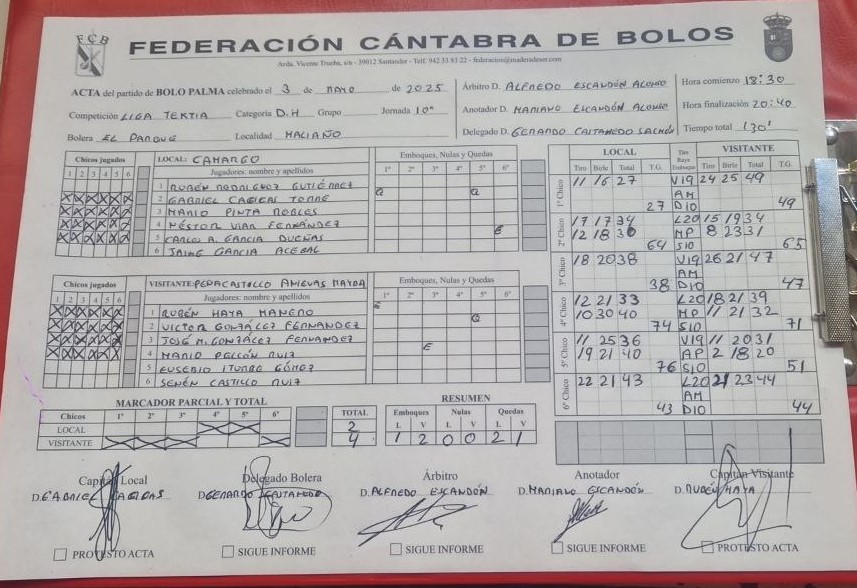 FCB
FEDERACIÓN CÁNTABRA DE BOLOS
Avda. Vicente Trueba, s/n - 39012 Santander - Telf. 942 33 83 22 - federacion@maderadeser.com
ACTA del partido de BOLO PALMA celebrado el 3 de MAYO de 2025
Competición LIGA TERTIA Categoría D.H Grupo Jornada 10ª
Bolera EL PARQUE Localidad MALIAÑO
Árbitro D. ALFREDO ESCANDÓN ALONSO
Anotador D. MARIANO ESCANDÓN ALONSO
Delegado D. GERARDO CASTAÑEDO
Hora comienzo 18:30
Hora finalización 20:40
Tiempo total 130'
Chicos jugados
1 2 3 4 5 6
LOCAL: CAMARGO
Jugadores: nombre y apellidos
1 RUBÉN RODRIGUEZ GUTIÉRREZ
2 GABRIEL CAGIGAS TORRE
3 MARIO PINTA ROBLES
4 NÉSTOR VIAR FERNÁNDEZ
5 CARLOS A. GARCIA DUEÑAS
6 JAIME GARCIA ACEBAL
Emboques, Nulas y Quedas
1º 2º 3º 4º 5º 6º
Q Q
E
Chicos jugados
1 2 3 4 5 6
VISITANTE: PEÑACASTILLO ANIEVAS MAYBA
Jugadores: nombre y apellidos
1 RUBÉN HAYA MANERO
2 VICTOR GONZÁLEZ FERNANDEZ
3 JOSÉ M. GONZÁLEZ FERNANDEZ
4 MARIO PELLÓN RUIZ
5 EUSEBIO ITURBE GÓMEZ
6 SENÉN CASTILLO RUIZ
Emboques, Nulas y Quedas
1º 2º 3º 4º 5º 6º
E
Q
E
LOCAL VISITANTE
Tiro Birle Total T.G. Tiro Raya Emboque Tiro Birle Total T.G.
1º Chico 11 16 27 V19 24 25 49
AM
27 D10 49
2º Chico 17 17 34 L20 15 19 34
12 18 30 MP 8 23 31
64 S10 65
3º Chico 18 20 38 V19 26 21 47
AM
38 D10 47
4º Chico 12 21 33 L20 18 21 39
10 30 40 MP 11 21 32
74 S10 71
5º Chico 11 25 36 V19 11 20 31
19 21 40 AP 2 18 20
76 S10 51
6º Chico 22 21 43 L20 21 23 44
AM
43 D10 44
MARCADOR PARCIAL Y TOTAL
Chicos 1º 2º 3º 4º 5º 6º TOTAL
LOCAL 2
VISITANTE 4
RESUMEN
Emboques Nulas Quedas
L V L V L V
1 2 0 0 2 1
Capitán Local
D. GABRIEL CAGIGAS
PROTESTO ACTA
Delegado Bolera
D. GERARDO CASTAÑEDO
SIGUE INFORME
Árbitro
D. ALFREDO ESCANDÓN
SIGUE INFORME
Anotador
D. MARIANO ESCANDÓN
SIGUE INFORME
Capitán Visitante
D. RUBÉN HAYA
PROTESTO ACTA